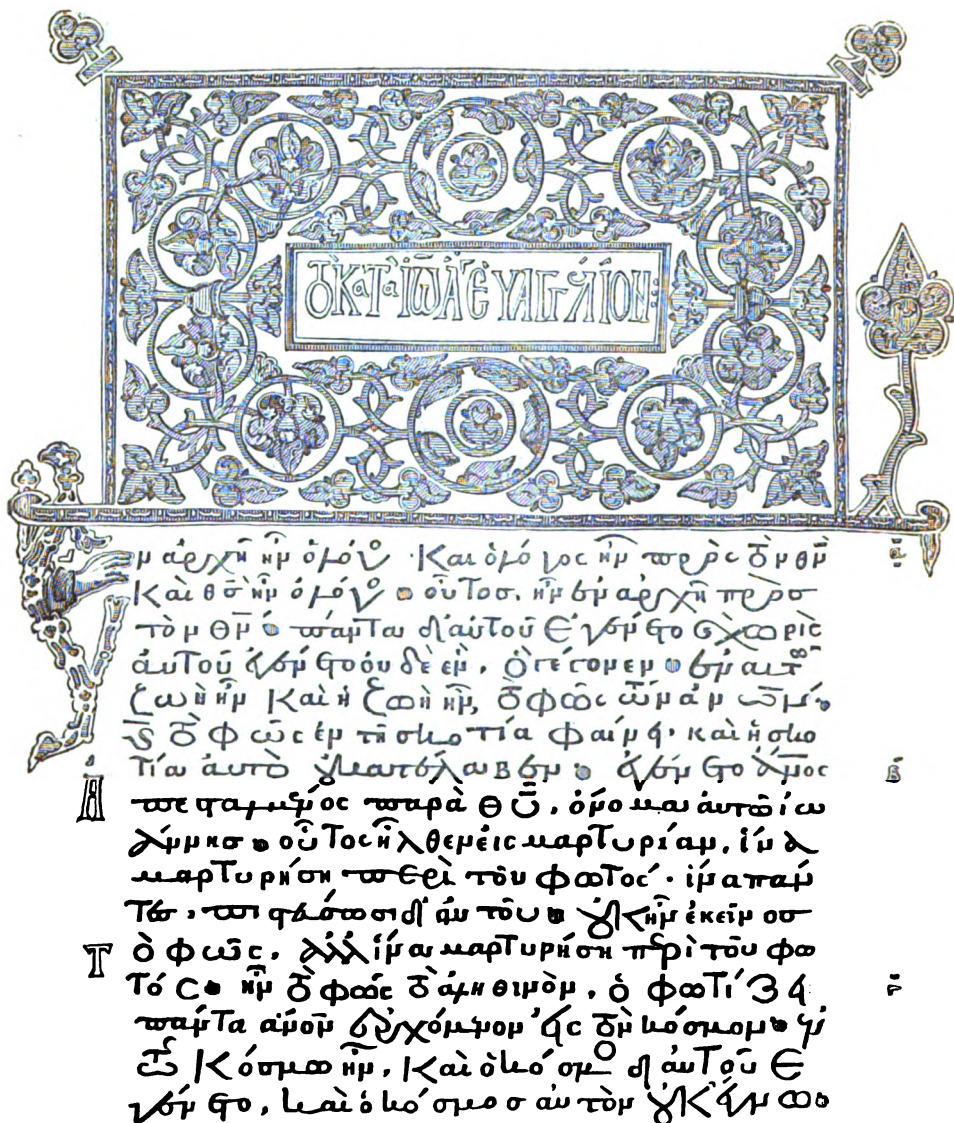 τὸ κατὰ ἰωά εὐαγγέλιον:
Ἐν ἀρχῆ ἦν ὁ λόγος · καὶ ὁ λόγος ἦν πρὸς τὸν θ̅ν̅ α̅
καὶ θ̅ς̅ ἦν ὁ λόγος · οὗτος, ἦν ἐν ἀρχῆ πρὸς
τὸν θ̅ν̅ · πάντα δι' αὐτοῦ ἐγένετο ϗ χωρὶς
αὐτοῦ ἐγένετο οὐδὲ ἕν, ὃ γέγονεν · ἐν αὐτῶ
ζωὴ ἦν καὶ ἡ ζωὴ ἦν, τὸ φῶς τῶν ἀνω̅ν̅ ·
ϗ τὸ φῶς ἐν τῆ σκοτία φαίνει · καὶ ἡ σκο
τία αὐτὸ οὐ κατέλαβεν · ἐγένετο ἄνος β̅
ἀπεσταλμένος παρὰ θ̅υ̅, ὄνομα αὐτῶ ἰω
άννης · οὗτος ἦλθεν εἰς μαρτυρίαν, ἵνα
μαρτυρήση περὶ τοῦ φωτός · ἵνα πάν
τες, πιστεύσωσι δι' αὐτοῦ · οὐκ ἦν ἐκεῖνος
τὸ φῶς, ἀλλ' ἵνα μαρτυρήση περὶ τοῦ φω
τός · ἦν τὸ φῶς τὸ ἀληθινὸν, ὃ φωτίζει γ̅
πάντα ἄνον ἐρχόμενον εἰς τὸν κόσμον · ἐν
τῶ κόσμω ἦν, καὶ ὁ κόσμος δι' αὐτοῦ ἐ
γένετο, καὶ ὁ κόσμος αὐτὸν οὐκ ἔγνω ·